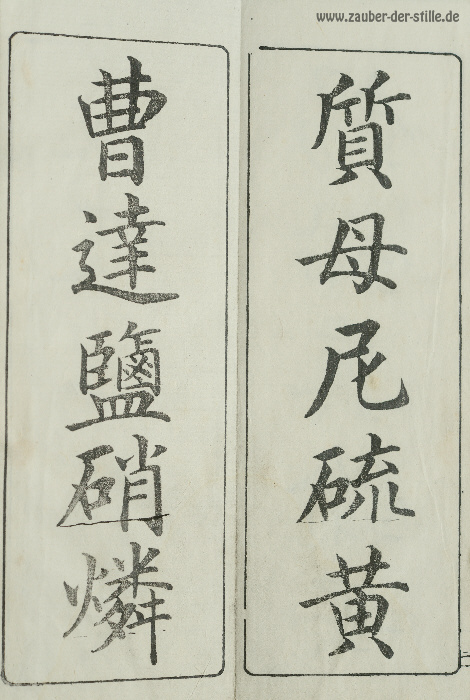 www.zauber-der-stille.de
質母尼硫黄
曹達鹽硝燐